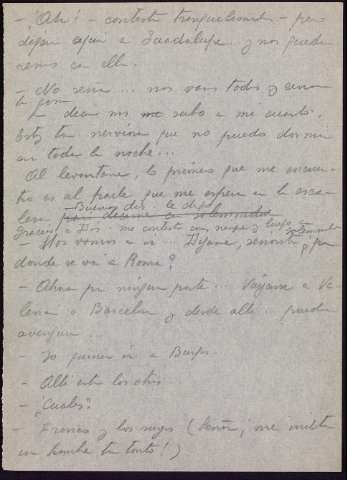 - ¡Ah! - contesta tranquilamente - pues
dejan aquí a Guadalupe y nos quedaremos
con ella.
- No señor ... nos vamos todos y
decir me subo a mi cuarto.
Estoy tan nerviosa que no puedo dormir
en toda la noche ...
Al levantarme, lo primero que me encuentro
es al fraile que me espera en la escalera
Buenos días le digo
gracias a Dios me contesta y luego
- Nos vamos a ir ... Dígame, señorita ¿por
donde se va a Roma?
- Ahora por ninguna parte ... Vayan a Valencia
o Barcelona y desde allí pueden
averiguar ...
- Yo quiero ir a Burgos.
- Allí están los otros ...
- ¿Cuales?
- Franco y los suyos (
un hombre tan tonto!)